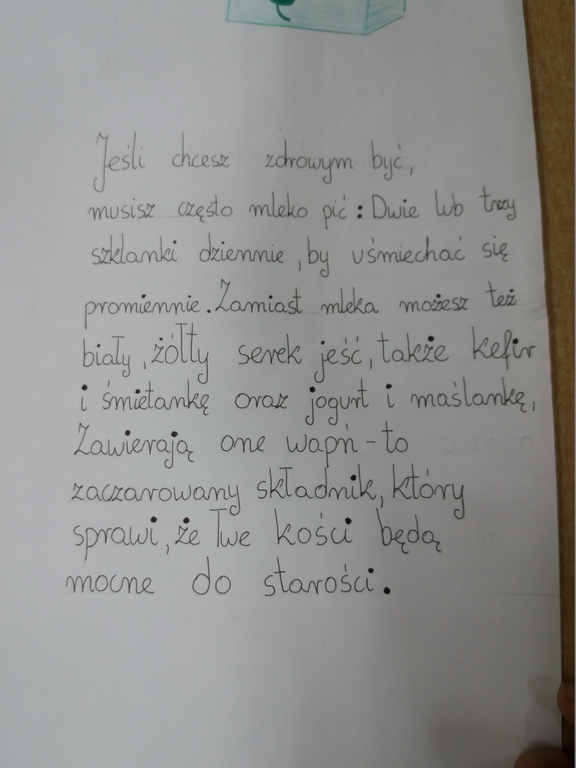 Jeśli chcesz zdrowym być,
musisz często mleko pić: Dwie lub trzy
szklanki dziennie, by uśmiechać się
promiennie. Zamiast mleka możesz też
biały, żółty serek jeść, także kefir
i śmietankę oraz jogurt i maślankę,
Zawierają one wapń - to
zaczarowany składnik, który
sprawi, że Twe kości będą
mocne do starości.